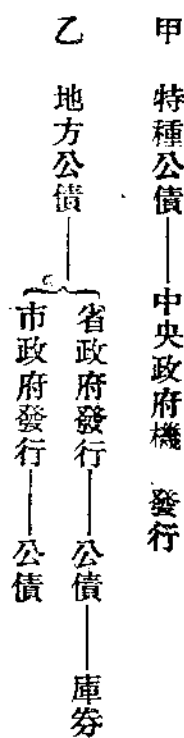 甲 特種公債——中央政府機 發行
乙 地方公債——
省政府發行——公債——庫券
市政府發行——公債